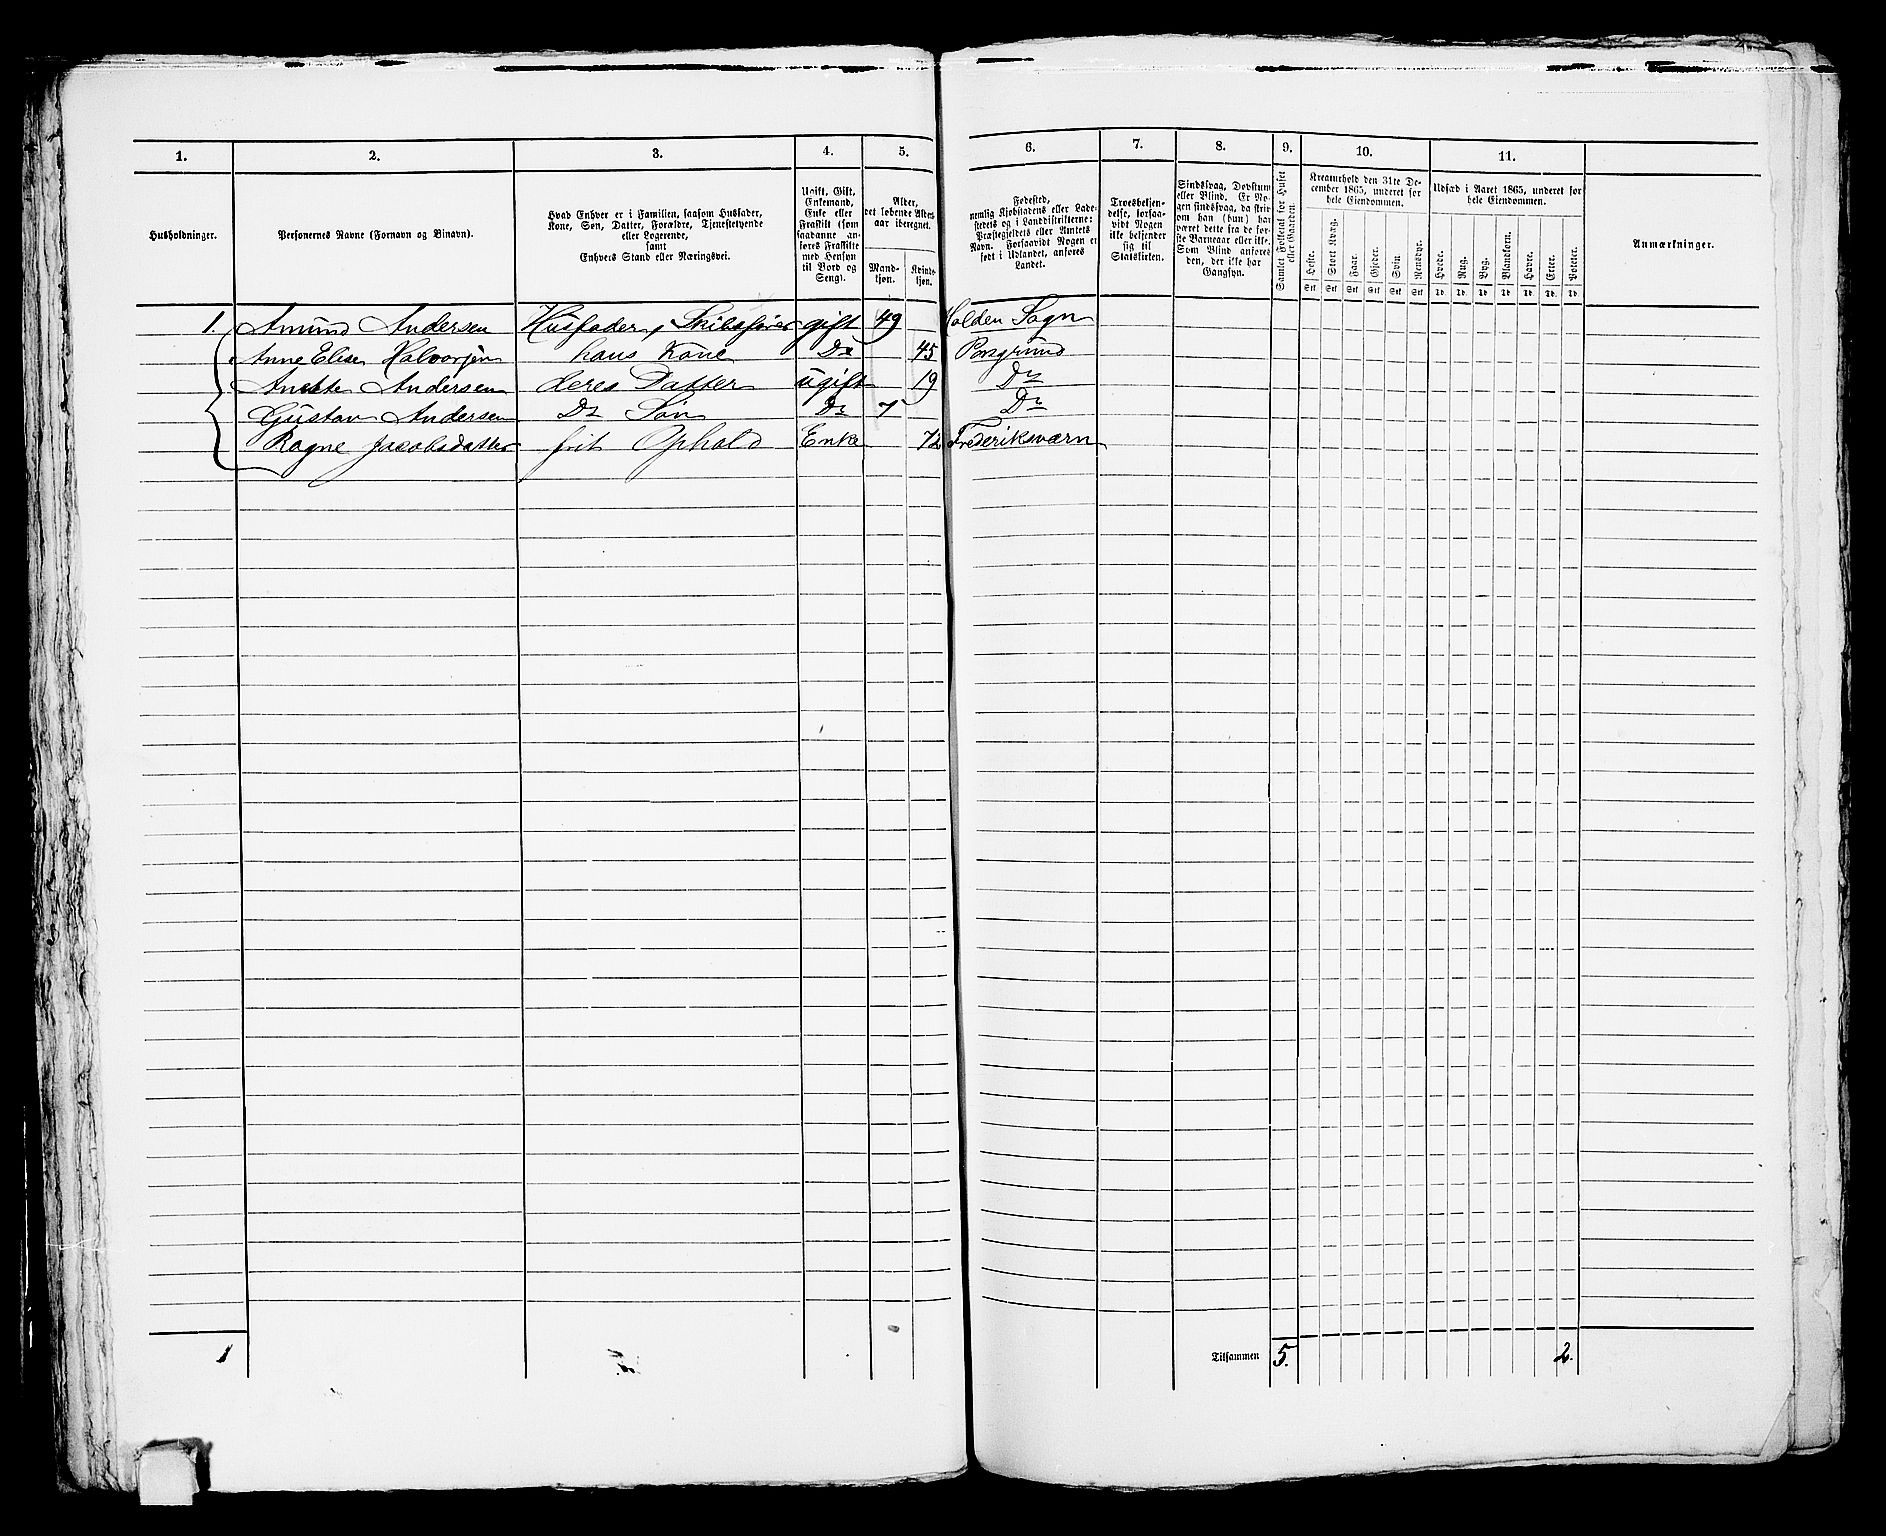 1. 2. 3. 4. 5. 6. 7. 8. 9. 10. 11.
Husholdninger.
Personernes Navne (Fornavn og Binavn).
Hvad Enhver er i Familien, saasom Husfader,
Kone, Søn, Datter, Forældre, Tjenestetyende
eller Logerende,
samt
Enhvers Stand eller Næringsvei.
Ugift, Gift,
Enkemand,
Enke eller
Fraskilt (som
saadanne an-
føres Fraskilte
med Hensyn
til Bord og
Seng).
Alder,
det løbende Alders-
aar iberegnet.
Mand-
kjøn.
Kvind-
kjøn.
Fødested,
nemlig Kjøbstadens eller Lade-
stedets og i Landdistrikterne:
Præstegjeldets eller Amtets
Navn. Forsaavidt Nogen er
født i Udlandet, anføres
Landet.
Troesbekjen-
delse, forsaa-
vidt Nogen
ikke bekjender
sig til
Statskirken.
Sindssvag, Døvstum
eller Blind. Er No-
gen sindssvag, da skriv
om han (hun) har
været dette fra de før-
ste Barneaar eller ikke.
Som Blind anføres
den, der ikke har
Gangsyn.
Samlet Folketal for Huset
eller Gaarden.
Kreaturhold den 31te De-
cember 1865, underet for
hele Eiendommen.
Heste. Stort Kvæg. Faar. Gjeder. Svin Rensdyr.
Stk Stk Stk Stk Stk Stk
Udsæd i Aaret 1865, underet for
hele Eiendommen.
Hvede. Rug. Byg. Blandkorn. Havre. Erter. Poteter.
Td. Td. Td. Td. Td. Td. Td.
Anmærkninger.
1. Amund Andersen Husfader, Skibsfører gift 49 Holden Sogn
Anne Elise Halvorsen hans Kone Do 45 Porsgrund
Anette Andersen deres Datter ugift 19 Do
Gustav Andersen Do Søn Do 7 Do
Ragne Jacobsdatter frit Ophold Enke 72 Frederiksværn
1 Tilsammen 5. 2.